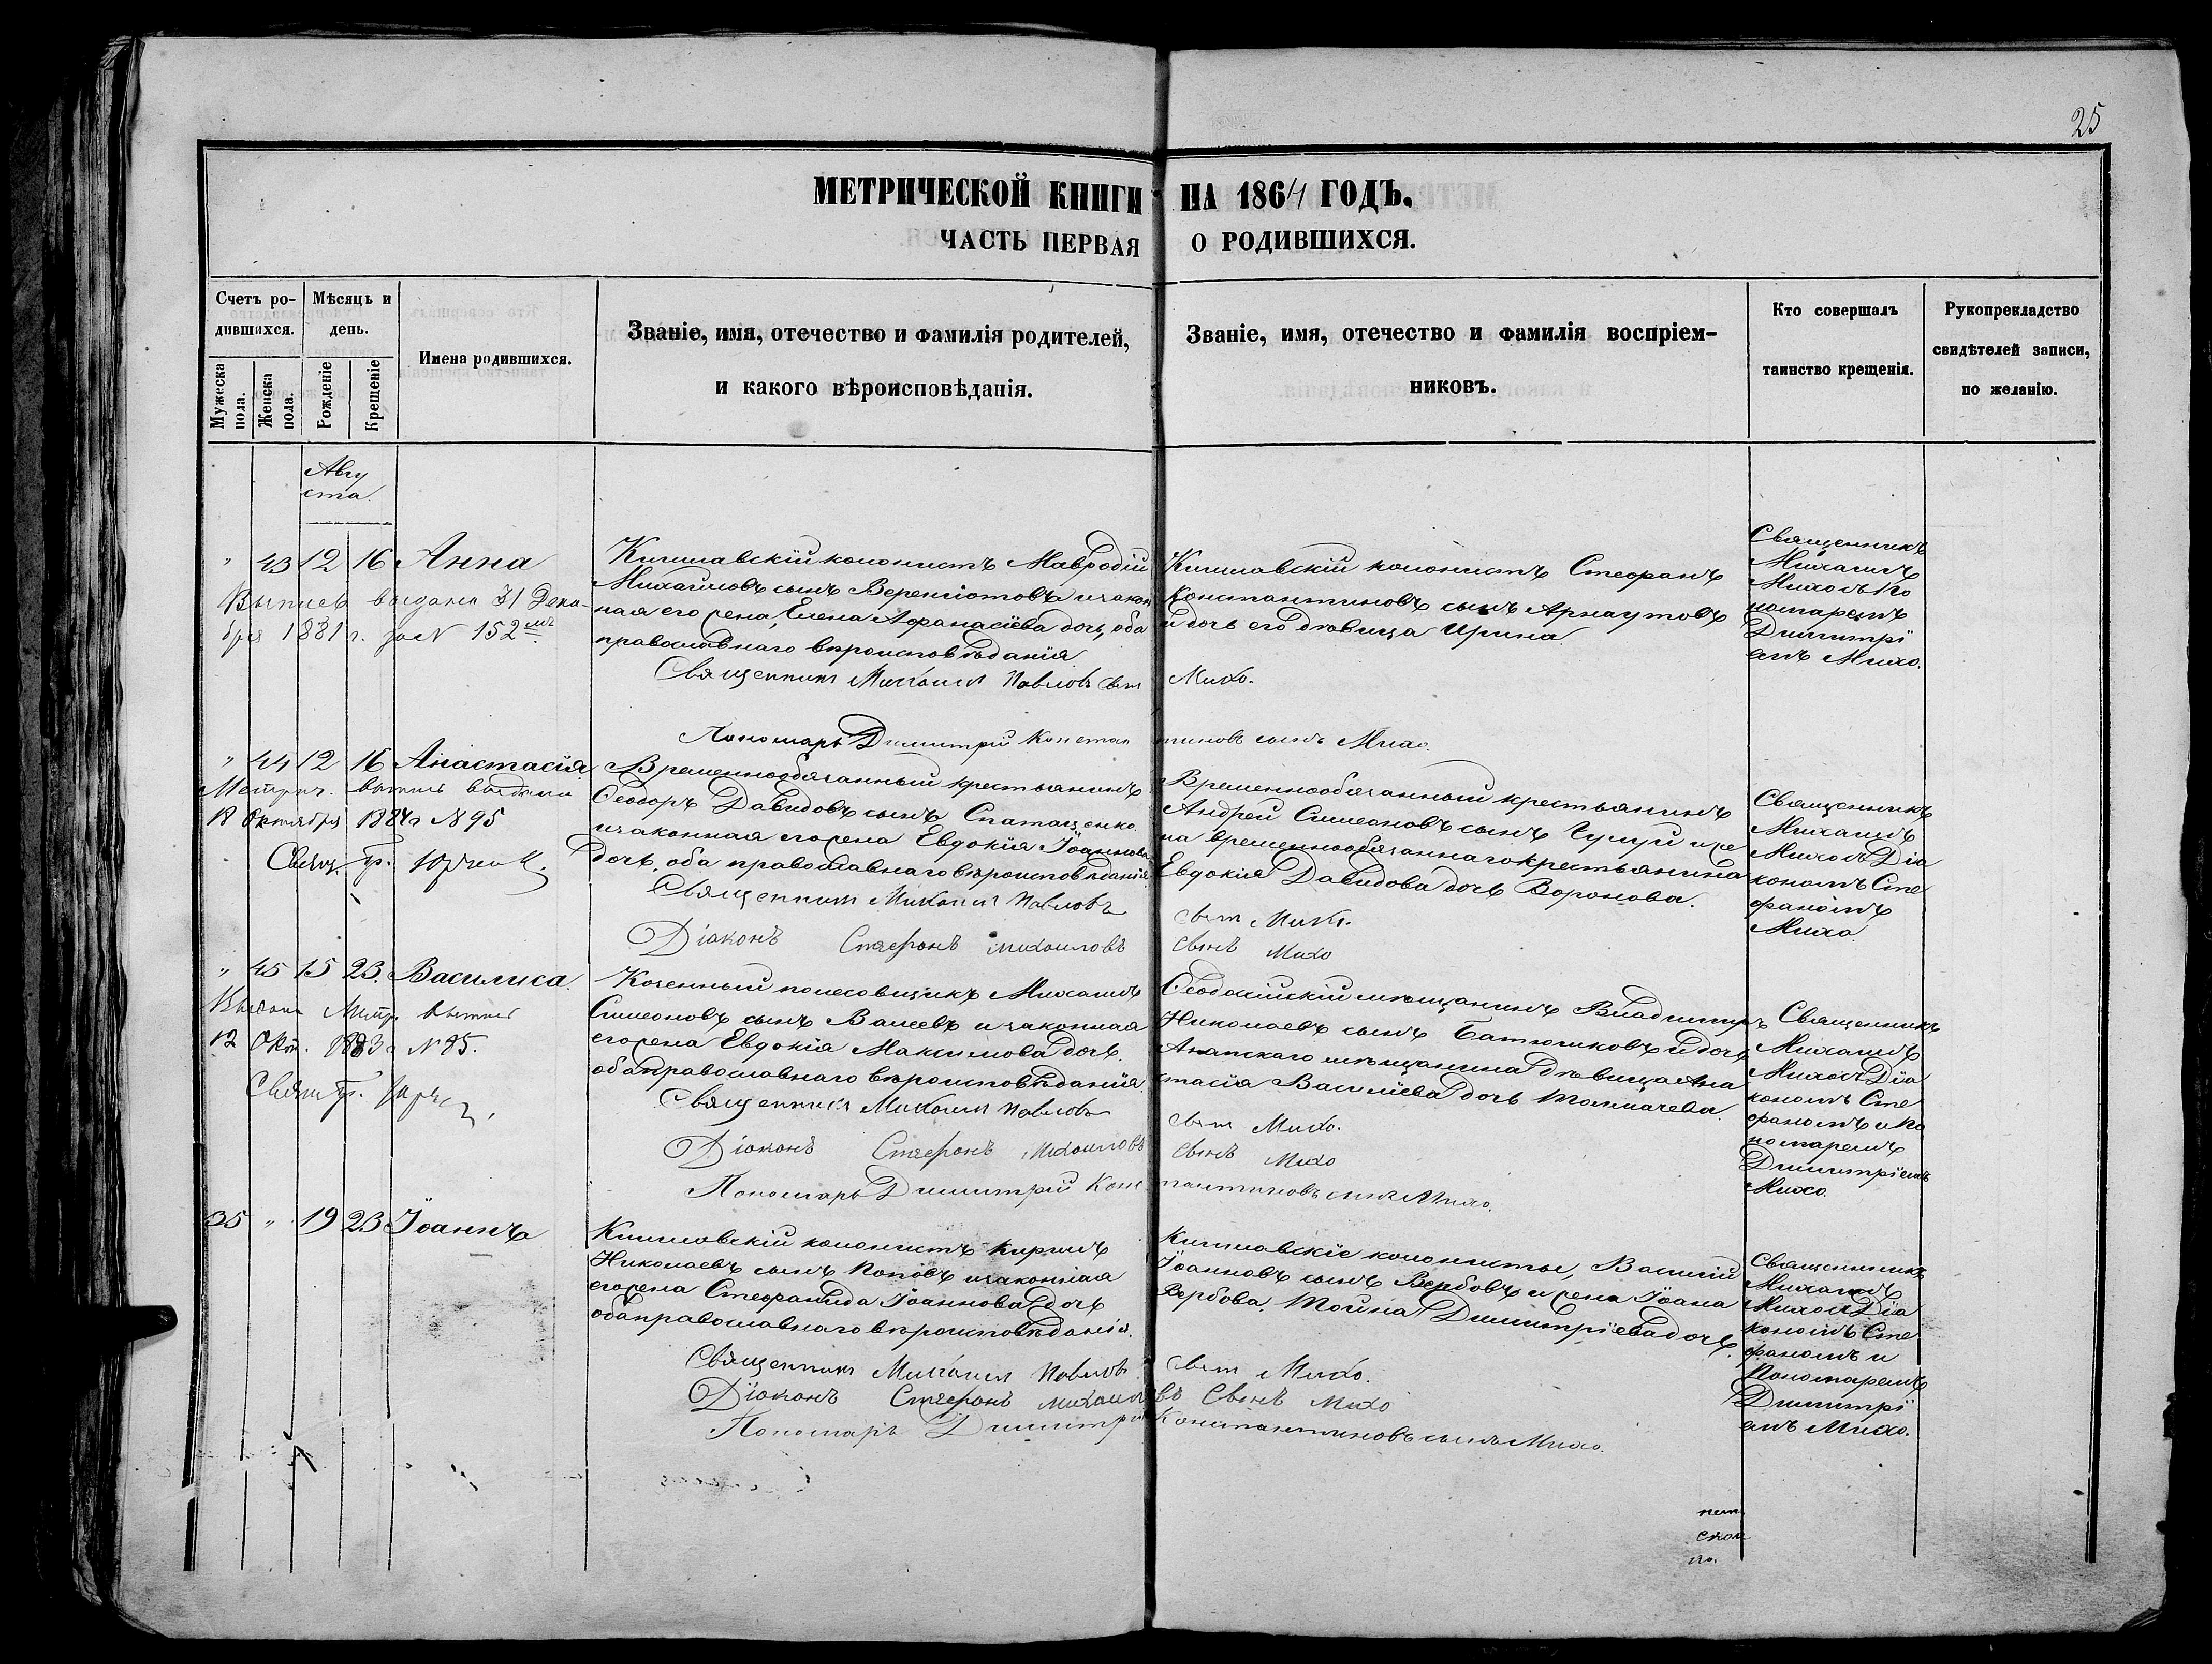 25
МЕТРИЧЕСКОЙ КНИГИ НА 1864 ГОДЪ.
ЧАСТЬ ПЕРВАЯ О РОДИВШИХСЯ.
Счетъ ро-
дившихся.
Мѣсяцъ и
день.
Мужеска
пола.
Женска
пола.
Рожденіе
Крещеніе
Имена родившихся.
Званіе, имя, отечество и фамилія родителей,
и какого вѣроисповѣданія.
Званіе, имя, отечество и фамилія воспріем-
никовъ.
Кто совершалъ
таинство крещенія.
Рукоприкладство
свидѣтелей записи,
по желанію.
Авгу
ста.
" 43 12 16 Анна
Выпись выдана 31 Дека-
бря 1881 г. за N 152
Кишлавскій колонистъ Мавродій
Михайловъ сынъ и закон
ная его жена, Елена Аѳанасіева дочь, оба
православнаго вѣроисповѣданія
Священникъ Михаилъ Павловъ сынъ Михо.
Пономарь Димитрій Константиновъ сынъ Михо.
Кишлавскій колонистъ Стефанъ
Константиновъ сынъ Арнаутовъ
и дочь его дѣвица Ирина
Священникъ
Михаилъ
Михо съ По
номаремъ
Димитрі
емъ Михо.
" 44 12 16 Анастасія
Метрич. выпись выдана
Октября 1884 г N 95
Свящ.
Временнообязанный крестьянинъ
Ѳеодоръ Давидовъ сынъ
и законная его жена Евдокія Іоаннова
дочь, оба православнаго вѣроисповѣданія
Священникъ Михаилъ Павловъ сынъ Михо.
Діаконъ Стефанъ Михаиловъ сынъ Михо
Временнообязанный крестьянинъ
Андрей Симеоновъ сынъ и же
на временнообязаннаго крестьянина
Евдокія Давидова дочь Воронова.
Священникъ
Михаилъ
Михо съ Діа
кономъ Сте
фаномъ
Михо.
" 45 15 23. Василиса.
Выдана Метр. выпись
12 Окт. 1883 г N 85.
Казенный полесовщикъ Михаилъ
Симеоновъ сынъ Валеевъ и законная
его жена Евдокія Максимова дочь.
оба православнаго вѣроисповѣданія
Священникъ Михаилъ Павловъ сынъ Михо.
Діаконъ Стефанъ Михаиловъ сынъ Михо
Пономарь Димитрій Константиновъ сынъ Михо.
Ѳеодосійскій мѣщанинъ Владимиръ
Николаевъ сынъ Батюшковъ и дочь
Анапскаго мѣщанина дѣвица Ана
стасія Василіева дочь Толмачева.
Священникъ
Михаилъ
Михо съ Діа
кономъ Сте
фаномъ и По
номаремъ
Димитріемъ
Михо.
35 " 19 23 Іоаннъ
Кишлавскій колонистъ Кирилъ
Николаевъ сынъ Поповъ и законная
его жена Стефанида Іоаннова дочь
оба православнаго вѣроисповѣданія.
Священникъ Михаилъ Павловъ сынъ Михо.
Діаконъ Стефанъ Михаиловъ Сынъ Михо
Пономарь Димитрій Константиновъ сынъ Михо.
Кишлавскіе колонисты, Василій
Іоанновъ сынъ Вербовъ и жена Іоана
Вербова, Димитріева дочь.
Священникъ
Михаилъ
Михо съ Діа
кономъ Сте
фаномъ и
Пономаремъ
Димитрі
емъ Михо.